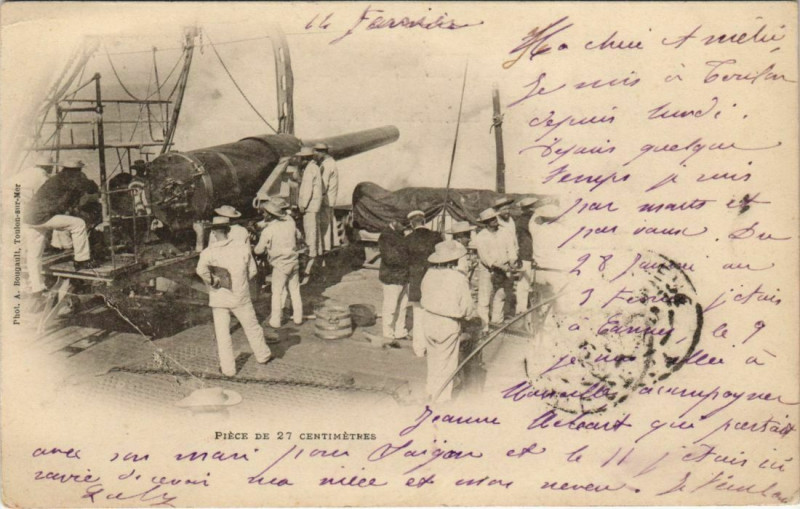 14 Février
Ma chère Amélie
Je suis à Toulon
depuis lundi.
Depuis quelque
temps je suis
par monts et
par vaux. Du
28 Janvier au
3 Février j'étais
à Cannes, le 9
je suis allée à
Marseille accompagner
Jeanne qui partait
avec son mari pour Saïgon et le 11 j'étais ici
ravie d'avoir ma nièce et mon neveu.
PIÈCE DE 27 CENTIMÈTRES
Phot. A. Bougault, Toulon-sur-Mer